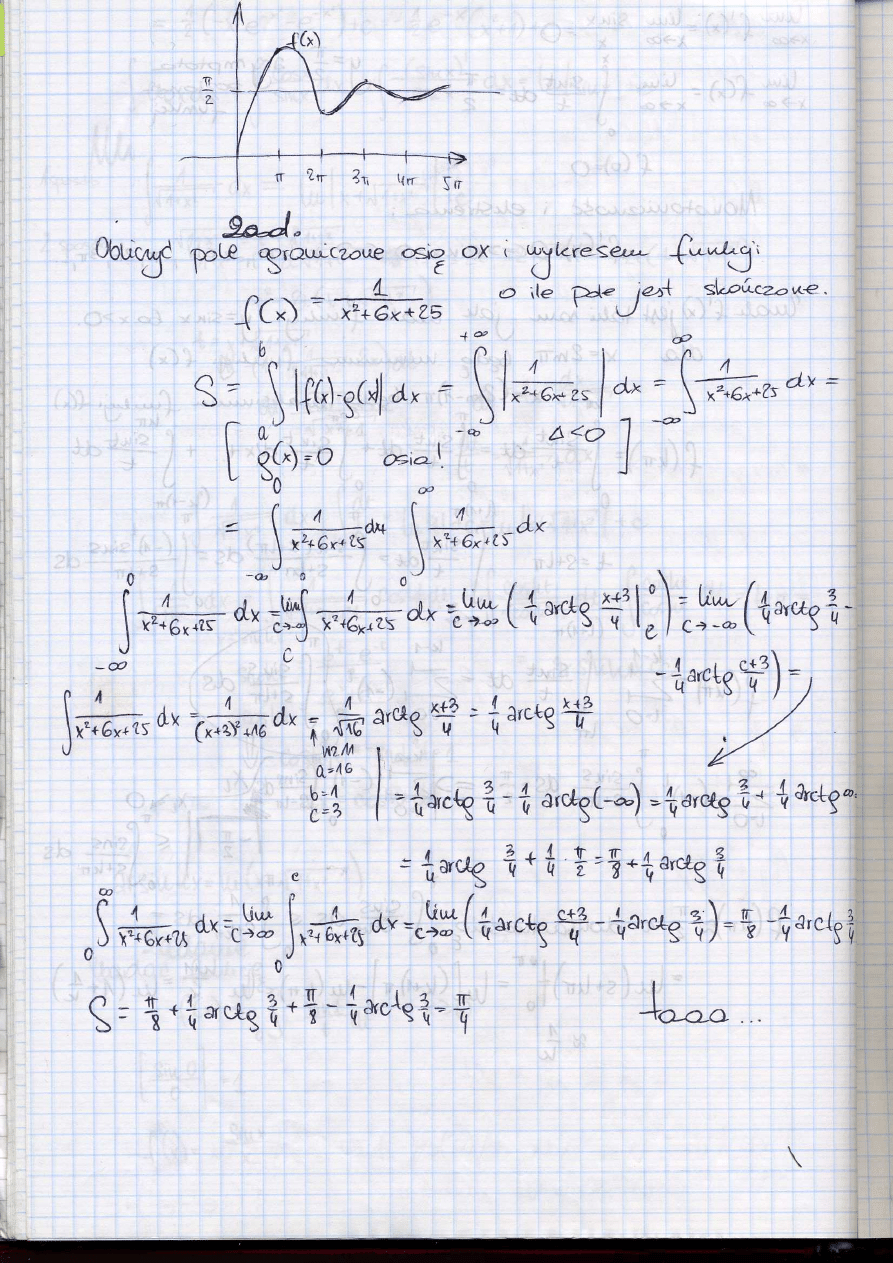 f(x)
π/2
π 2π 3π 4π 5π
Zad.
Obliczyć pole ograniczone osią OX i wykresem funkcji
f(x) = 1/(x²+6x+25) o ile pole jest skończone.
S = ∫_a^b |f(x)-g(x)| dx = ∫_{-∞}^{+∞} |1/(x²+6x+25)| dx = ∫_{-∞}^{∞} 1/(x²+6x+25) dx =
[ g(x)=0 osia! Δ<0 ]
= ∫_{-∞}^0 1/(x²+6x+25) dx + ∫_0^∞ 1/(x²+6x+25) dx
∫_{-∞}^0 1/(x²+6x+25) dx = lim_{c→-∞} ∫_c^0 1/(x²+6x+25) dx = lim_{c→-∞} (1/4 arctg (x+3)/4 |_c^0) = lim_{c→-∞} (1/4 arctg 3/4 -
- 1/4 arctg (c+3)/4) =
∫ 1/(x²+6x+25) dx = 1/((x+3)²+16) dx = 1/√16 arctg (x+3)/4 = 1/4 arctg (x+3)/4
wz 11
a=16
b=1
c=3
= 1/4 arctg 3/4 - 1/4 arctg(-∞) = 1/4 arctg 3/4 + 1/4 arctg ∞ =
= 1/4 arctg 3/4 + 1/4 · π/2 = π/8 + 1/4 arctg 3/4
∫_0^∞ 1/(x²+6x+25) dx = lim_{c→∞} ∫_0^c 1/(x²+6x+25) dx = lim_{c→∞} (1/4 arctg (c+3)/4 - 1/4 arctg 3/4) = π/8 - 1/4 arctg 3/4
S = π/8 + 1/4 arctg 3/4 + π/8 - 1/4 arctg 3/4 = π/4 taaa...